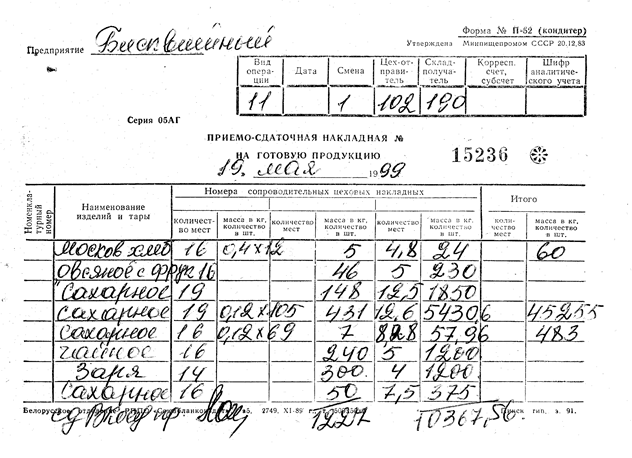 Форма № П-52 (кондитер)
Утверждена Минпищепромом СССР 20.12.83
Предприятие Бисквитный
Вид операции Дата Смена Цех-отправитель Склад-получатель Корресп. счет, субсчет Шифр аналитического учета
11 1 102 190
Серия 05АГ
ПРИЕМО-СДАТОЧНАЯ НАКЛАДНАЯ №
НА ГОТОВУЮ ПРОДУКЦИЮ 15236
19. мая 1999
Номенклатурный номер Наименование изделий и тары Номера сопроводительных цеховых накладных Итого
количество мест масса в кг, количество в шт. количество мест масса в кг, количество в шт. количество мест масса в кг, количество в шт. количество мест масса в кг, количество в шт.
москов хлеб 16 0,4х12 5 4,8 24 60
овсяное с фрук 16 46 5 230
"Сахарное 19 148 12,5 1850
Сахарное 19 0,12х105 431 12,6 54306 45255
Сахарное 16 0,12х69 7 8,28 57,96 483
чайное 16 240 5 1200
Заря 14 300 4 1200
Сахарное 16 50 7,5 375
Белорусское 2749, XI-89 тип, з. 91.
1227 10367,56